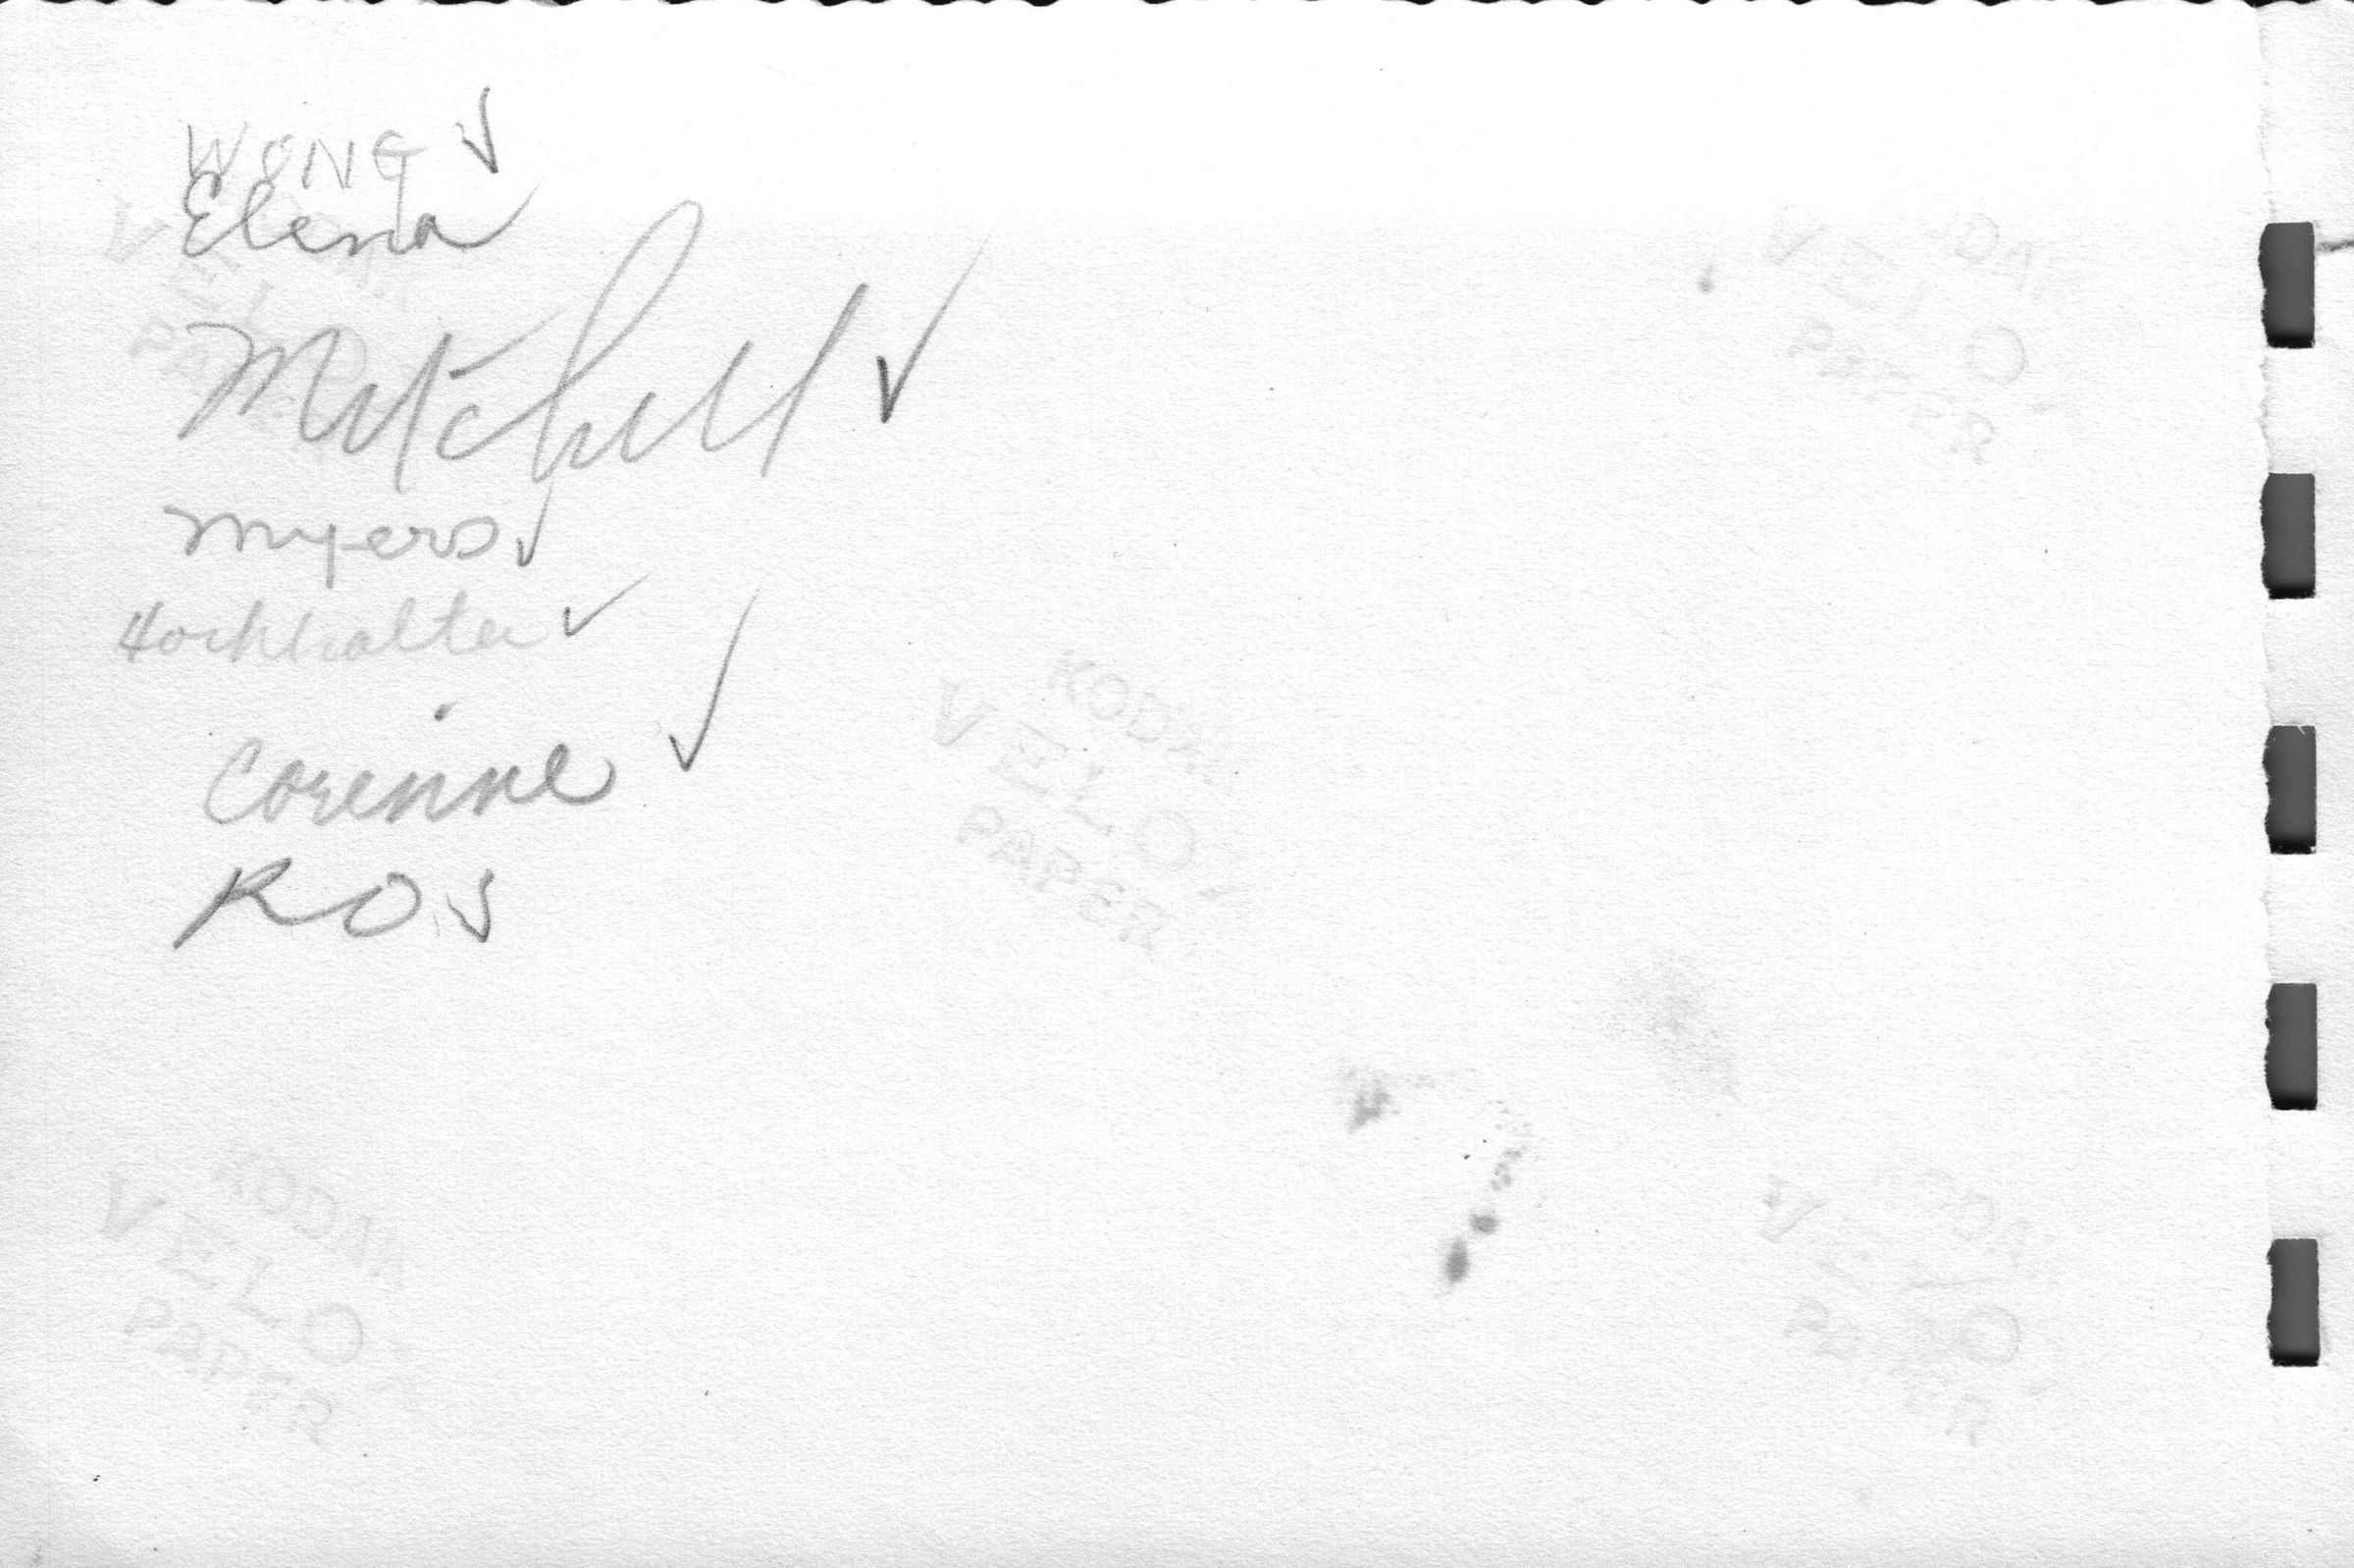 WONG ✓
Elena
Mitchell ✓
Myers ✓
Hochhalter ✓
Corinne ✓
RO ✓
KODAK
VELOX
PAPER
DAK
VELO
PAPER
KODAK
VELOX
PAPER
KODAK
VELOX
PAPER
KODA
VELO
PAPER